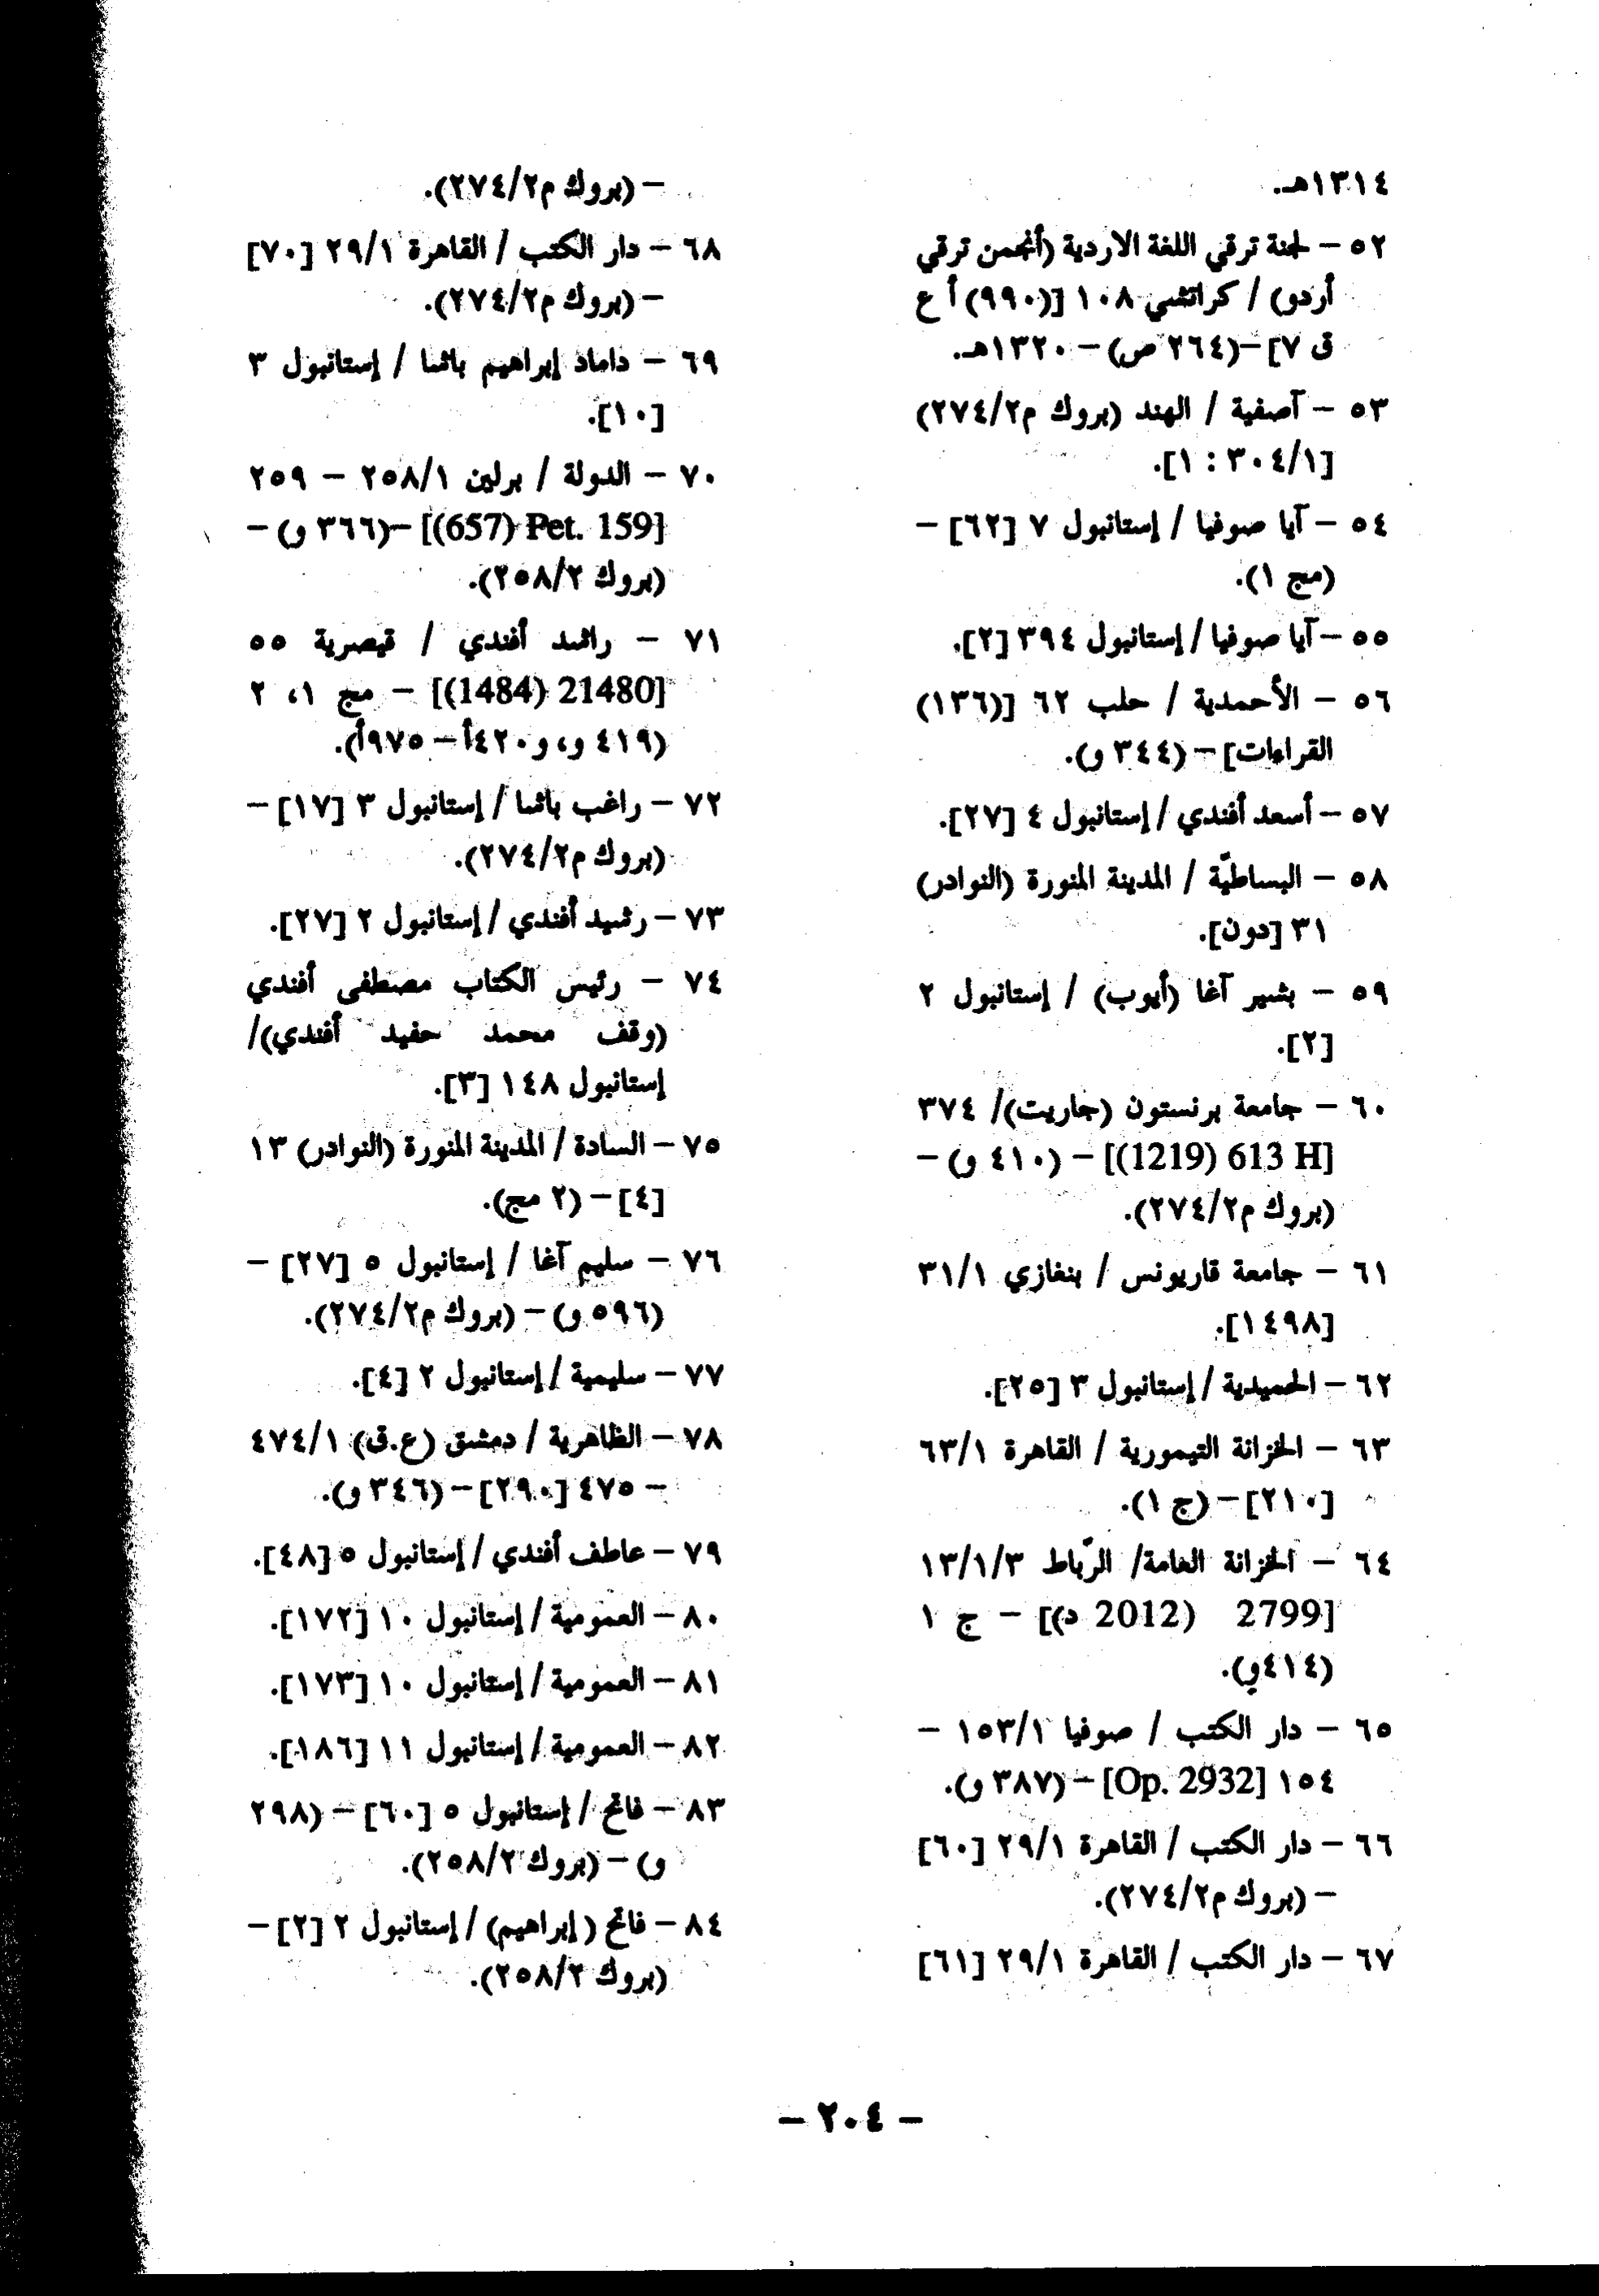 ١٣١٤هـ.
٥٢ – لجنة ترقي اللغة الاردية (أنجمن ترقي
أردو) / كراتشي ١٠٨ [(٩٩٠) أ ع
ق ٧] –(٢٦٤ ص) – ١٣٢٠هـ.
٥٣ – آصفية / الهند (بروك م٢/٢٧٤)
[٣٠٤/١ : ١].
٥٤ – آيا صوفيا / إستانبول ٧ [٦٢] –
(مج ١).
٥٥ – آيا صوفيا / إستانبول ٣٩٤ [٢].
٥٦ – الأحمدية / حلب ٦٢ [(١٣٦)
القراءات] – (٣٤٤ و).
٥٧ – أسعد أفندي / إستانبول ٤ [٢٧].
٥٨ – البساطيّة / المدينة المنورة (النوادر)
٣١ [دون].
٥٩ – بشير آغا (أيوب) / إستانبول ٢
[٢].
٦٠ – جامعة برنستون (جاريت)/ ٣٧٤
[613 H (1219)] – (٤١٠ و) –
(بروك م٢/٢٧٤).
٦١ – جامعة قاريونس / بنغازي ٣١/١
[١٤٩٨].
٦٢ – الحميدية / إستانبول ٣ [٢٥].
٦٣ – الخزانة التيمورية / القاهرة ٦٣/١
[٢١٠] – (ج ١).
٦٤ – الخزانة العامة/ الرّباط ١٣/١/٣
[2799 (2012 د)] – ج ١
(٤١٤و).
٦٥ – دار الكتب / صوفيا ١٥٣/١ –
١٥٤ [Op. 2932] – (٣٨٧ و).
٦٦ – دار الكتب / القاهرة ٢٩/١ [٦٠]
– (بروك م٢/٢٧٤).
٦٧ – دار الكتب / القاهرة ٢٩/١ [٦١]
– (بروك م٢/٢٧٤).
٦٨ – دار الكتب / القاهرة ٢٩/١ [٧٠]
– (بروك م٢/٢٧٤).
٦٩ – داماد إبراهيم باشا / إستانبول ٣
[١٠].
٧٠ – الدولة / برلين ٢٥٨/١ – ٢٥٩
[Pet. 159 (657)] –(٣٦٦ و) –
(بروك ٢٥٨/٢).
٧١ – راشد أفندي / قيصرية ٥٥
[21480 (1484)] – مج ١، ٢
(٤١٩ و، و٤٢٠أ – ٩٧٥أ).
٧٢ – راغب باشا / إستانبول ٣ [١٧] –
(بروك م٢/٢٧٤).
٧٣ – رشيد أفندي / إستانبول ٢ [٢٧].
٧٤ – رئيس الكتاب مصطفى أفندي
(وقف محمد حفيد أفندي)/
إستانبول ١٤٨ [٣].
٧٥ – السادة / المدينة المنورة (النوادر) ١٣
[٤] – (٢ مج).
٧٦ – سليم آغا / إستانبول ٥ [٢٧] –
(٥٩٦ و) – (بروك م٢/٢٧٤).
٧٧ – سليمية / إستانبول ٢ [٤].
٧٨ – الظاهرية / دمشق (ع.ق) ٤٧٤/١
– ٤٧٥ [٢٩٠] – (٣٤٦ و).
٧٩ – عاطف أفندي / إستانبول ٥ [٤٨].
٨٠ – العمومية / إستانبول ١٠ [١٧٢].
٨١ – العمومية / إستانبول ١٠ [١٧٣].
٨٢ – العمومية / إستانبول ١١ [١٨٦].
٨٣ – فاتح / إستانبول ٥ [٦٠] – (٢٩٨
و) – (بروك ٢٥٨/٢).
٨٤ – فاتح (إبراهيم) / إستانبول ٢ [٢] –
(بروك ٢٥٨/٢).
– ٢٠٤ –